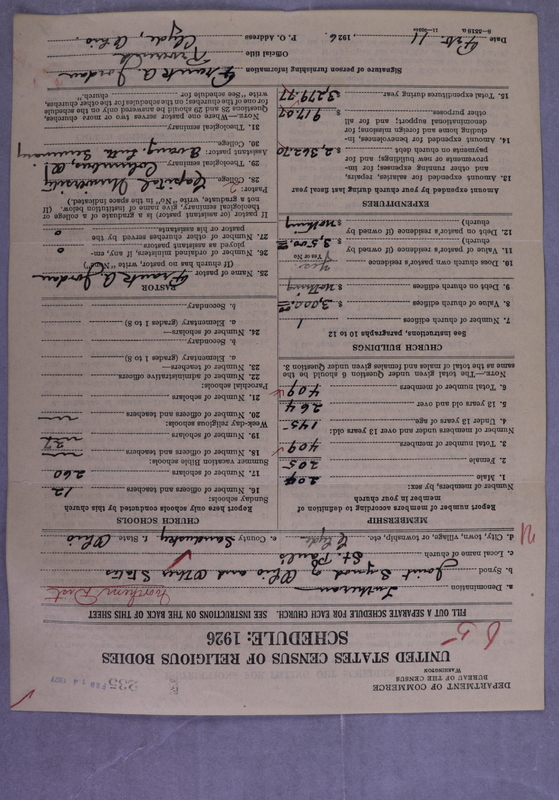 DEPARTMENT OF COMMERCE
BUREAU OF THE CENSUS
WASHINGTON
235
FEB 14 1927
UNITED STATES CENSUS OF RELIGIOUS BODIES
SCHEDULE: 1926
FILL OUT A SEPARATE SCHEDULE FOR EACH CHURCH. SEE INSTRUCTIONS ON THE BACK OF THIS SHEET
a. Denomination Lutheran Northern Dist
b. Synod Joint Synod of Ohio and Other States
c. Local name of church St. Paul's
d. City, town, village, or township, etc. Clyde e. County Sandusky f. State Ohio
MEMBERSHIP
Report number of members according to definition of member in your church
Number of members, by sex:
1. Male 204
2. Female 205
3. Total number of members 409
Number of members under and over 13 years old:
4. Under 13 years of age 145
5. 13 years old and over 264
6. Total number of members 409
NOTE.—The total given under Question 6 should be the same as the total of males and females given under Question 3.
CHURCH BUILDINGS
See instructions, paragraphs 10 to 12
7. Number of church edifices 1
8. Value of church edifices $ 3,000.00
9. Debt on church edifices $ nothing
10. Does church own pastor's residence? yes
Yes or No
11. Value of pastor's residence (if owned by church) $ 3,500.00
12. Debt on pastor's residence (if owned by church) $ nothing
EXPENDITURES
Amount expended by your church during last fiscal year
13. Amount expended for salaries, repairs, and other running expenses; for improvements or new buildings; and for payments on church debt $ 2,362.70
14. Amount expended for benevolences, including home and foreign missions; for denominational support; and for all other purposes $ 917.07
15. Total expenditures during year 3,279.77
CHURCH SCHOOLS
Report here only schools conducted by this church
Sunday schools:
16. Number of officers and teachers 12
17. Number of scholars 260
Summer vacation Bible schools:
18. Number of officers and teachers
19. Number of scholars
Week-day religious schools:
20. Number of officers and teachers
21. Number of scholars
Parochial schools:
22. Number of administrative officers
23. Number of teachers—
a. Elementary (grades 1 to 8)
b. Secondary
24. Number of scholars—
a. Elementary (grades 1 to 8)
b. Secondary
PASTOR
25. Name of pastor Frank A. Jordan
(If church has no pastor, write "No")
26. Number of ordained ministers, if any, employed as assistant pastors 0
27. Number of other churches served by the pastor or his assistants 0
If pastor (or assistant pastor) is a graduate of a college or theological seminary, give name of institution below. (If not a graduate, write "No" in the space indicated.)
Pastor:
28. College Capital University
29. Theological seminary Columbus, O! Evang. Luth Seminary
Assistant pastor:
30. College
31. Theological seminary
NOTE.—Where one pastor serves two or more churches, Questions 25 and 29 should be answered only on the schedule for one of the churches; on the schedules for the other churches, write "See schedule for church."
Signature of person furnishing information Frank A. Jordan
Official title
P. O. Address Clyde, Ohio.
Date 11, 1926